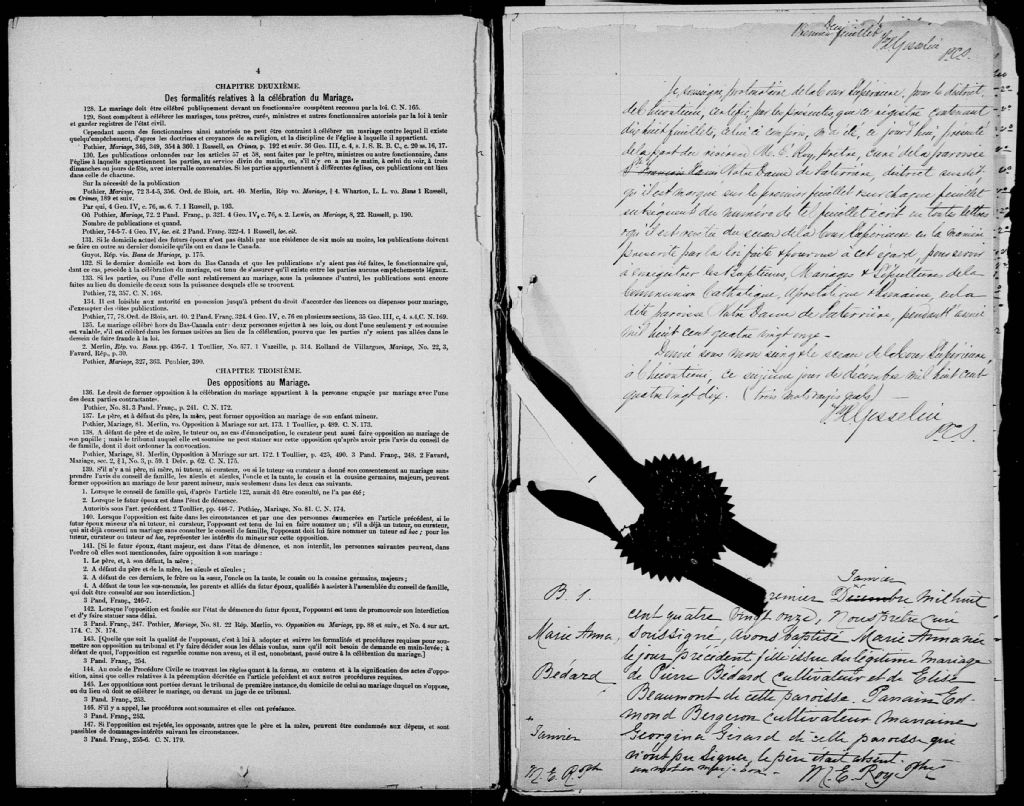 4
CHAPITRE DEUXIÈME.
Des formalités relatives à la célébration du Mariage.
128. Le mariage doit être célébré publiquement devant un fonctionnaire compétent reconnu par la loi. C. N. 165.
129. Sont compétents à célébrer les mariages, tous prêtres, curés, ministres et autres fonctionnaires autorisés par la loi à tenir
et garder registres de l'état civil.
Cependant aucun des fonctionnaires ainsi autorisés ne peut être contraint à célébrer un mariage contre lequel il existe
quelqu'empêchement, d'après les doctrines et croyances de sa religion, et la discipline de l'église à laquelle il appartient.
Pothier, Mariage, 346, 349, 354 à 360. 1 Russell, on Crimes, p. 192 et suiv. 36 Geo. III, c. 4, s. 1. S. R. B. C., c. 20 ss. 16, 17.
130. Les publications ordonnées par les articles 57 et 58, sont faites par le prêtre, ministre ou autre fonctionnaire, dans
l'église à laquelle appartiennent les parties, au service divin du matin, ou, s'il n'y en a pas le matin, à celui du soir, à trois
dimanches ou jours de fête, avec intervalle convenables. Si les parties appartiennent à différentes églises, ces publications ont lieu
dans celle de chacune.
Sur la nécessité de la publication
Pothier, Mariage, 72 3-4-5, 356. Ord. de Blois, art. 40. Merlin, Rép vo. Mariage, § 4. Wharton, L. L. vo. Bans 1 Russell,
on Crimes, 189 et suiv.
Par qui, 4 Geo. IV, c. 76, ss. 6. 7. 1 Russell, p. 193.
Où Pothier, Mariage, 72. 2 Pand. Franç., p. 321. 4 Geo. IV, c. 76, s. 2. Lewis, on Mariage, 8, 22. Russell, p. 190.
Nombre de publications et quand.
Pothier, 74-5-7. 4 Geo. IV, loc. cit. 2 Pand. Franç. 322-4. 1 Russell, loc. cit.
131. Si le domicile actuel des futurs époux n'est pas établi par une résidence de six mois au moins, les publications doivent
se faire en outre au dernier domicile qu'ils ont eu dans le Canada.
Guyot, Rép. vis. Bans de Mariage, p. 175.
132. Si le dernier domicile est hors du Bas Canada et que les publications n'y aient pas été faites, le fonctionnaire qui,
dans ce cas, procède à la célébration du mariage, est tenu de s'assurer qu'il existe entre les parties aucuns empêchements légaux.
133. Si les parties, ou l'une d'elle sont relativement au mariage, sous la puissance d'autrui, les publications sont encore
faites au lieu du domicile de ceux sous la puissance desquels elle se trouvent.
Pothier, 72, 357. C. N. 168.
134. Il est loisible aux autorité en possession jusqu'à présent du droit d'accorder des licences ou dispenses pour mariage,
d'exempter des dites publications.
Pothier, 77, 78. Ord. de Blois, art. 40. 2 Pand. Franç. 324. 4 Geo. IV, c. 76 en plusieurs sections, 35 Geo. III, c. 4. s.4, C. N. 169.
135. Le mariage célébré hors du Bas-Canada entre deux personnes sujettes à ses lois, ou dont l'une seulement y est soumise
est valable, s'il est célébré dans les formes usitées au lieu de la célébration, pourvu que les parties n'y soient pas allées dans le
dessein de faire fraude à la loi.
2. Merlin, Rép. vo. Bans. pp. 436-7. 1 Toullier, No. 577. 1 Vazeille, p. 314. Rolland de Villargues, Mariage, No. 22, 3,
Favard, Rép., p. 30.
Pothier, Mariage, 327, 363. Pothier, 390.
CHAPITRE TROISIÈME.
Des oppositions au Mariage.
136. Le droit de former opposition à la célébration du mariage appartient à la personne engagée par mariage avec l'une
des deux parties contractantes.
Pothier, No. 81. 3 Pand. Franç., p. 241. C. N. 172.
137. Le père, et à défaut du père, la mère, peut former opposition au mariage de son enfant mineur.
Pothier, Mariage, 81. Merlin, vo. Opposition à Mariage sur art. 173. 1 Toullier, p. 489. C. N. 173.
138. A défaut de père et de mère, le tuteur ou, au cas d'émancipation, le curateur peut aussi faire opposition au mariage de
son pupille ; mais le tribunal auquel elle est soumise ne peut statuer sur cette opposition qu'après avoir pris l'avis du conseil de
de famille, dont il doit ordonner la convocation.
Pothier, Mariage, 81. Merlin, Opposition à Mariage sur art. 172. 1 Toullier, p. 425, 490. 3 Pand. Franç., 248. 2 Favard,
Mariage, sec. 2, § 1, No. 3, p. 59. 1 Delv. p. 62. C. N. 175.
139. S'il n'y a ni père, ni mère, ni tuteur, ni curateur, ou si le tuteur ou curateur a donné son consentement au mariage sans
prendre l'avis du conseil de famille, les aïeuls et aïeules, l'oncle et la tante, le cousin et la cousine germains, majeurs, peuvent
former opposition au mariage de leur parent mineur, mais seulement dans les deux cas suivants.
1. Lorsque le conseil de famille qui, d'après l'article 122, aurait dû être consulté, ne l'a pas été ;
2. Lorsque le futur époux est dans l'état de démence.
Autorités sous l'art. précédent. 2 Toullier, pp. 446-7. Pothier, Mariage, No. 81. C. N. 174.
140. Lorsque l'opposition est faite dans les circonstances et par une des personnes énumerées en l'article précédent, si le
futur époux mineur n'a ni tuteur, ni curateur, l'opposant est tenu de lui en faire nommer un ; s'il a déjà un tuteur, ou curateur,
qui ait déjà consenti au mariage sans consulter le conseil de famille, l'opposant doit lui faire nommer un tuteur ad hoc ; pour les
tuteur, curateur ou tuteur ad hoc, représenter les intérêts du mineur sur cette opposition.
141. [Si le futur époux, étant majeur, est dans l'état de démence, et non interdit, les personnes suivantes peuvent, dans
l'ordre où elles sont mentionnées, faire opposition à son mariage :
1. Le père, et, à son défaut, la mère ;
2. A défaut du père et de la mère, les aïeuls et aïeules ;
3. A défaut de ces derniers, le frère ou la sœur, l'oncle ou la tante, le cousin ou la cousine germains, majeurs ;
4. A défaut de tous les sus-nommés, les parents et alliés du futur époux, qualifiés à assister à l'assemblée du conseil de famille,
qui doit être consulté sur son interdiction.]
3 Pand. Franç., 246-7.
142. Lorsque l'opposition est fondée sur l'état de démence du futur époux, l'opposant est tenu de promouvoir son interdiction
et d'y faire statuer sans délai.
3 Pand. Franç., 247. Pothier, Mariage, No. 81. 22 Rép. Merlin, vo. Opposition au Mariage, pp. 88 et suiv., et No. 4 sur art.
174. C. N. 174.
143. [Quelle que soit la qualité de l'opposant, c'est à lui à adopter et suivre les formalités et procédures requises pour sou-
mettre son opposition au tribunal et l'y faire décider sous les délais voulus, sans qu'il soit besoin de demande en main-levée ; à
défaut de quoi, l'opposition est regardée comme non avenue, et il est, nonobstant, passé outre à la célébration du mariage.]
3 Pand. Franç., 254.
144. Au code de Procédure Civile se trouvent les règles quant à la forme, au contenu et à la signification des actes d'oppo-
sition, ainsi que celles relatives à la péremption décrétée en l'article précédent et aux autres procédures requises.
145. Les oppositions sont portées devant le tribunal de première instance, du domicile de celui au mariage duquel on s'oppose,
ou du lieu où doit se célébrer le mariage, ou devant un juge de ce tribunal.
3 Pand. Franç., 253.
146. S'il y a appel, les procédures sont sommaires et elles ont préséance.
3 Pand. Franç., 253.
147. Si l'opposition est rejetée, les opposants, autres que le père et la mère, peuvent être condamnés aux dépens, et sont
passibles de dommages-intérêts suivant les circonstances.
3 Pand. Franç., 255-6. C. N. 179.
Premier feuillet
Gosselin
P.C.S.
Je, soussigné, protonotaire de la Cour Supérieure, pour le district
de Chicoutimi, certifie par les présentes que ce registre contenant
dix huit feuillets, celui-ci compris, m'a été, ce jourd'hui, présenté
de la part du révérend M. E. Roy, prêtre, curé de la paroisse
Notre Dame de Laterrière, district susdit
qu'il est marqué sur le premier feuillet & sur chaque feuillet
subséquent du numéro de tel feuillet écrit en toutes lettres
& qu'il est revêtu du sceau de la Cour Supérieure en la manière
prescrite par la loi faite & pourvue à cet égard, pour servir
à enregistrer les Baptêmes, Mariages & Sépultures de la
Communion Catholique, Apostolique & Romaine, en la
dite paroisse Notre Dame de Laterrière, pendant l'année
mil huit cent quatre vingt onze.
Donné sous mon seing & le sceau de la Cour Supérieure,
à Chicoutimi, ce sixième jour de décembre mil huit cent
quatre vingt dix. (Trois mots rayés nuls)
Gosselin
P.C.S.
Janvier
B 1. Premier Décembre mil huit
cent quatre vingt onze, Nous prêtre curé
Marie Anna, soussigné, avons baptisé Marie Anna née
le jour précédent fille issue du légitime mariage
Bédard de Pierre Bédard cultivateur et de Elise
Beaumont de cette paroisse. Parrain Ed-
mond Bergeron cultivateur Marraine
Janvier Georgina Girard de cette paroisse qui
n'ont pu signer, le père était absent.
M. E. Roy Ptre un mot en marge bon. M. E. Roy Ptre